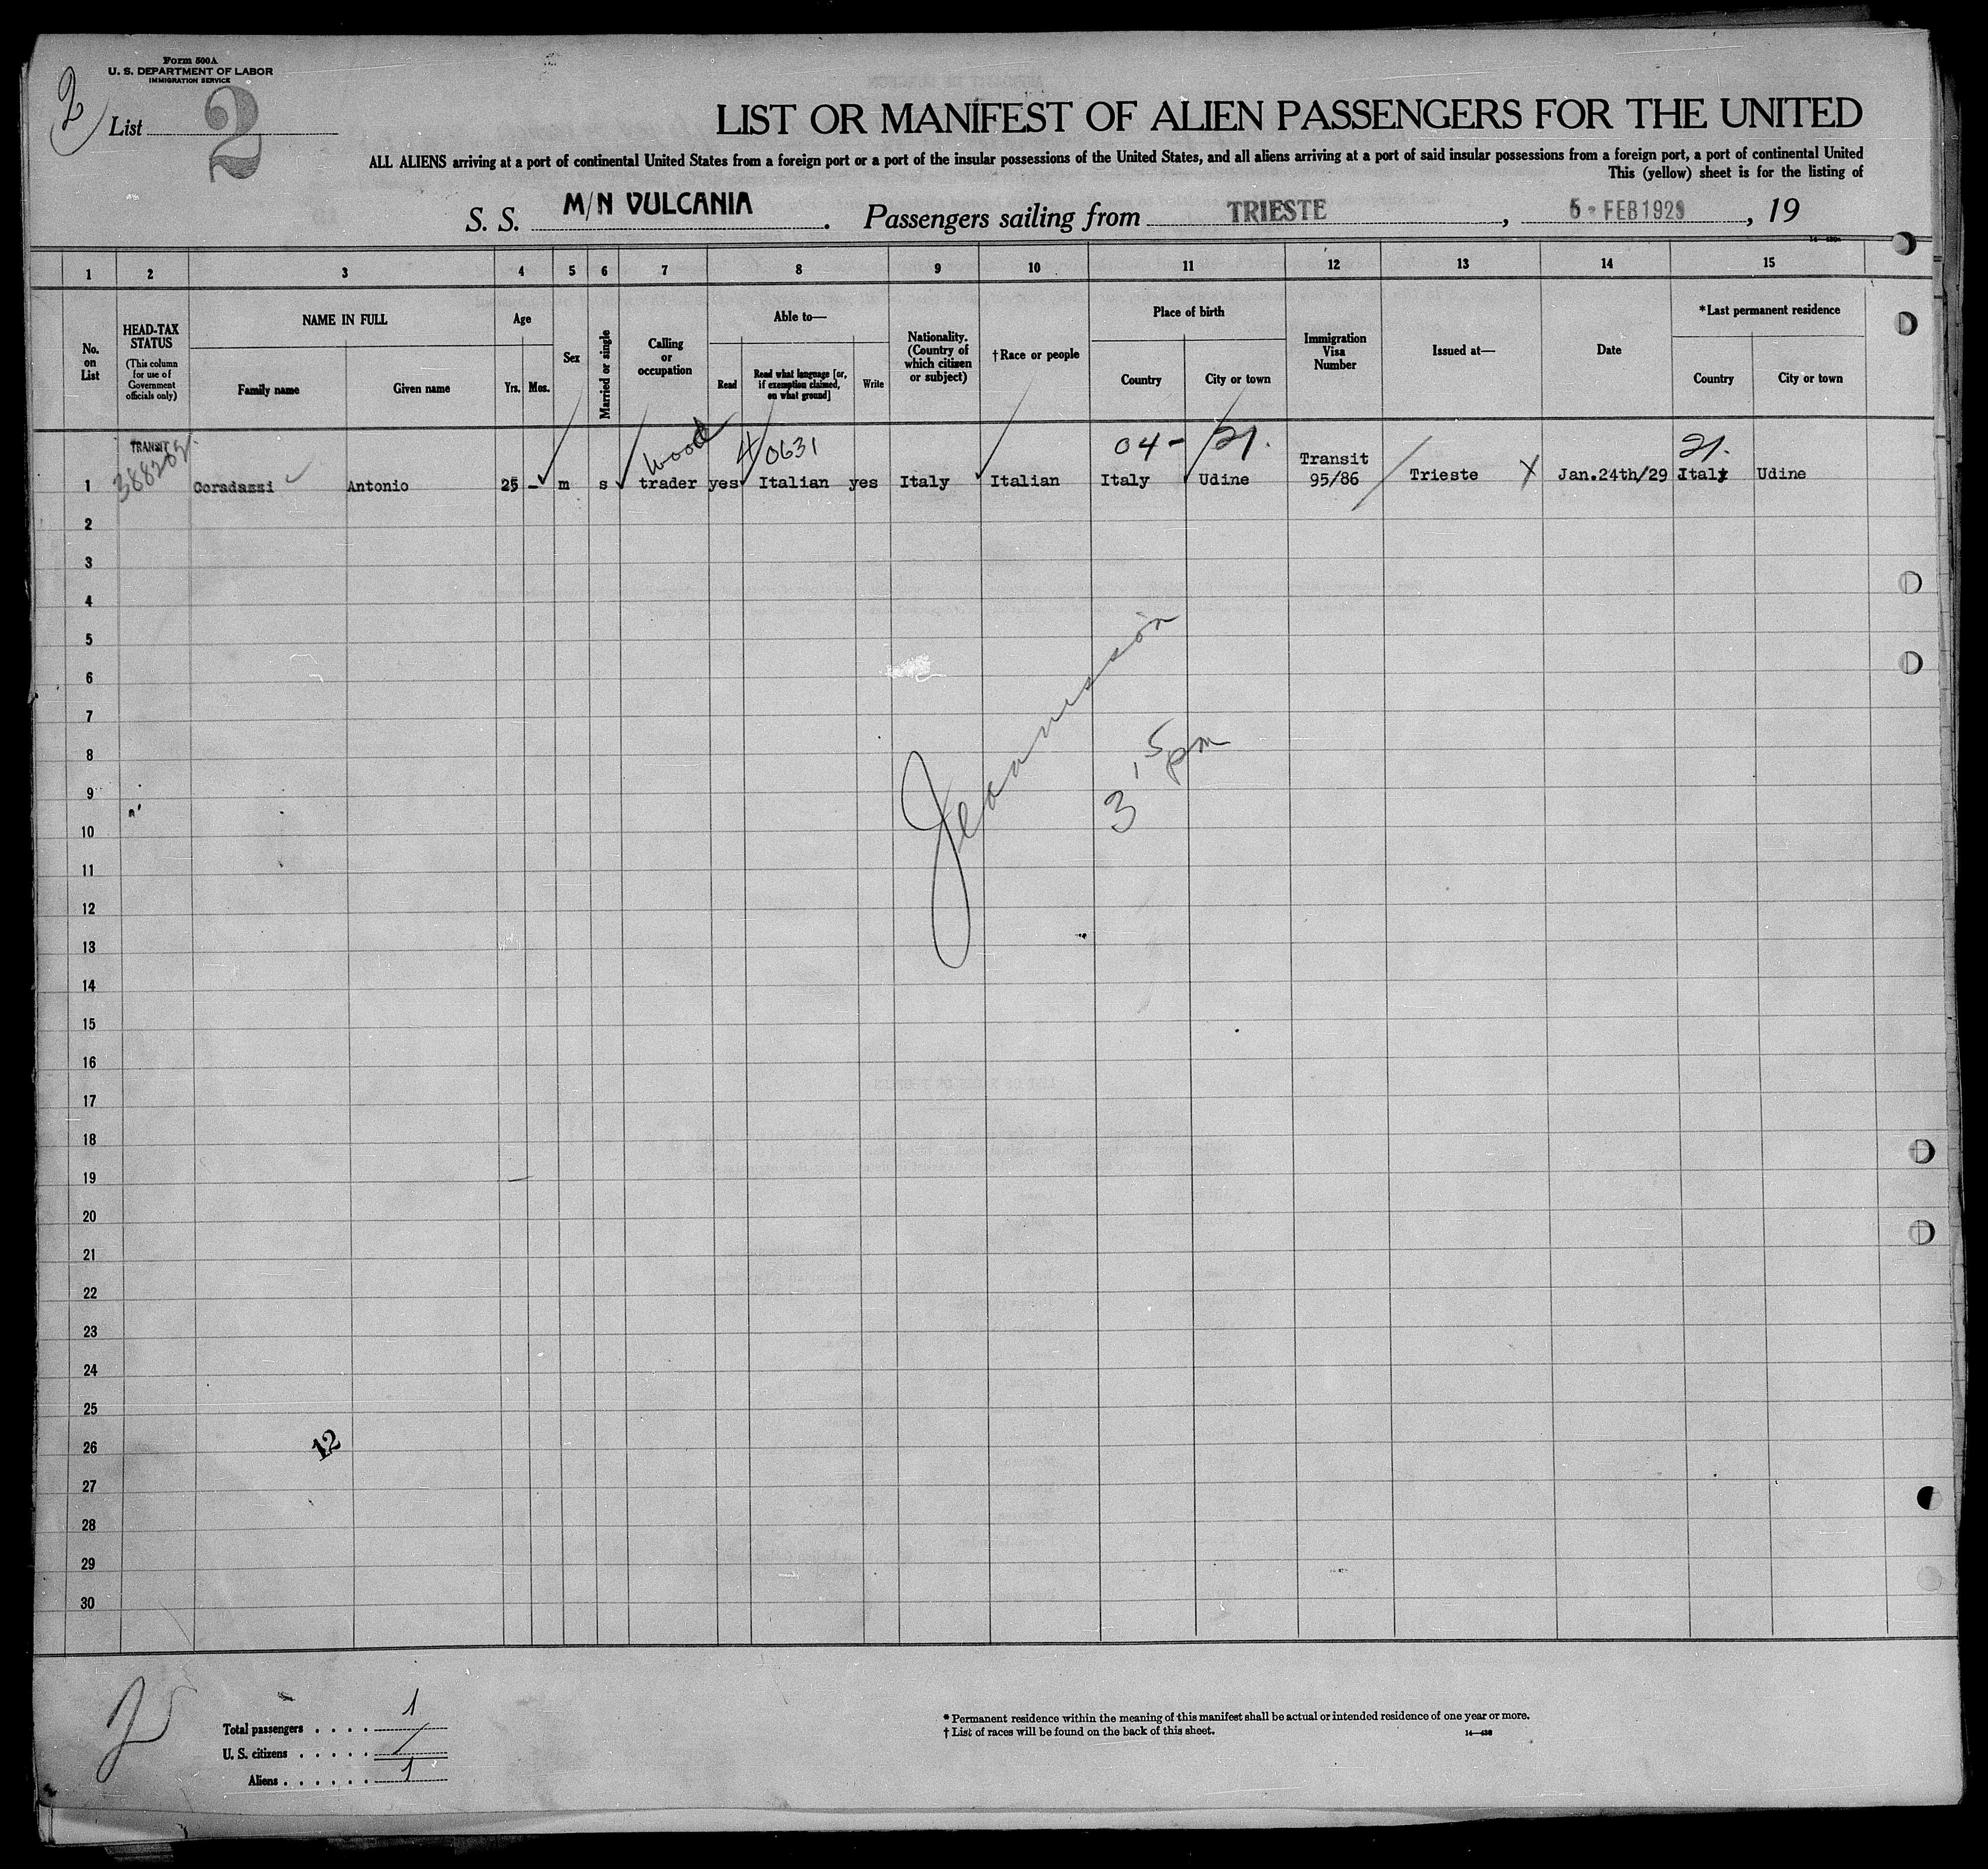 Form 500A
U. S. DEPARTMENT OF LABOR
IMMIGRATION SERVICE
2
List 2
LIST OR MANIFEST OF ALIEN PASSENGERS FOR THE UNITED
ALL ALIENS arriving at a port of continental United States from a foreign port or a port of the insular possessions of the United States, and all aliens arriving at a port of said insular possessions from a foreign port, a port of continental United
This (yellow) sheet is for the listing of
S. S. M/N VULCANIA. Passengers sailing from TRIESTE, 5 - FEB 1929, 19
1 2 3 4 5 6 7 8 9 10 11 12 13 14 15
No. on List
HEAD-TAX STATUS
(This column for use of Government officials only)
NAME IN FULL
Family name Given name
Age
Yrs. Mos.
Sex
Married or single
Calling or occupation
Able to—
Read
Read what language [or, if exemption claimed, on what ground]
Write
Nationality. (Country of which citizen or subject)
†Race or people
Place of birth
Country City or town
Immigration Visa Number
Issued at—
Date
*Last permanent residence
Country City or town
TRANSIT wood 4/0631 04- 21. 21.
1 Coradazzi Antonio 25 - m s trader yes Italian yes Italy Italian Italy Udine Transit 95/86 Trieste Jan.24th/29 Italy Udine
2
3
4
5
6
7
8
9
10
11
12
13
14
15
16
17
18
19
20
21
22
23
24
25
26
27
28
29
30
3 15 pm
12
2
Total passengers . . . . 1
U. S. citizens . . . . . /
Aliens . . . . . . 1
* Permanent residence within the meaning of this manifest shall be actual or intended residence of one year or more.
† List of races will be found on the back of this sheet.